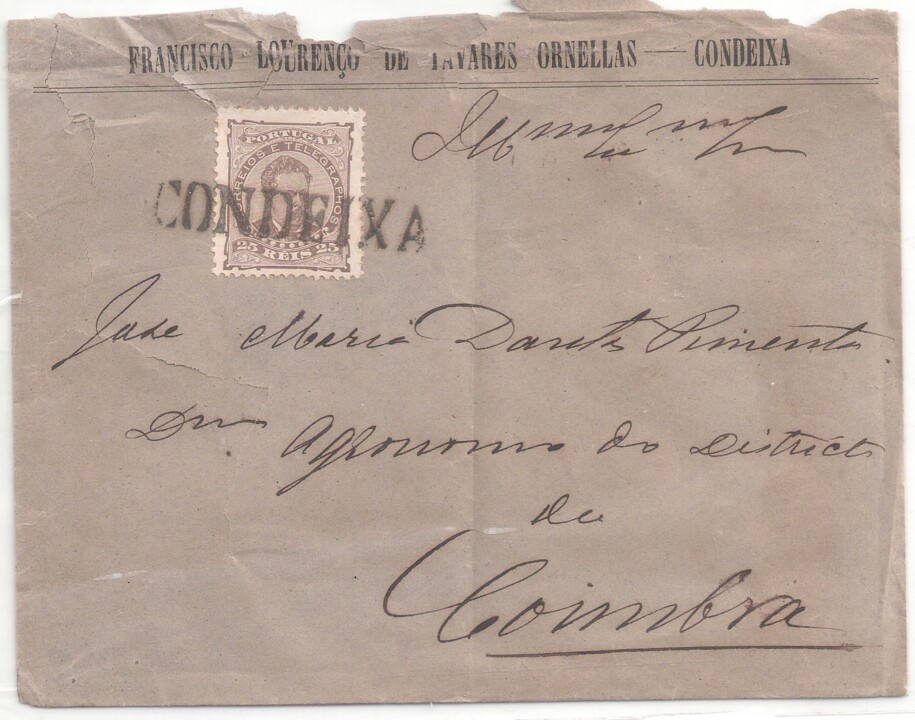 FRANCISCO LOURENÇO DE TAVARES ORNELLAS — CONDEIXA
PORTUGAL
CORREIOS E TELEGRAPHOS
25 REIS 25
CONDEIXA
Jose Maria Dantas Pimenta
Dmo Agronomo do Districto
de
Coimbra